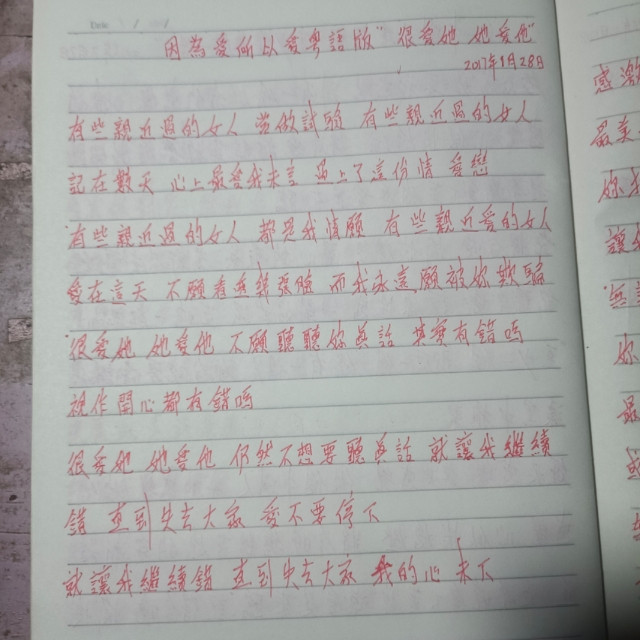 Date / /
因為愛所以愛粵語版"很愛她 她愛他"
2017年9月28日
有些親近過的女人 當做試驗 有些親近過的女人
記在數天 心上最愛我未言 遇上了這份情 愛戀
有些親近過的女人 都是我情願 有些親近愛的女人
愛在這天 不願看 而我永遠願被你欺騙
很愛她 她愛他 不願聽聽你 話 其實有錯嗎
視作開心都有錯嗎
很愛她 她愛他 仍然不想要聽 話 就讓我繼續
錯 直到失去大家 愛不要停下
就讓我繼續錯 直到失去大家 我的心未下
感激
最美
你
讓
你
最